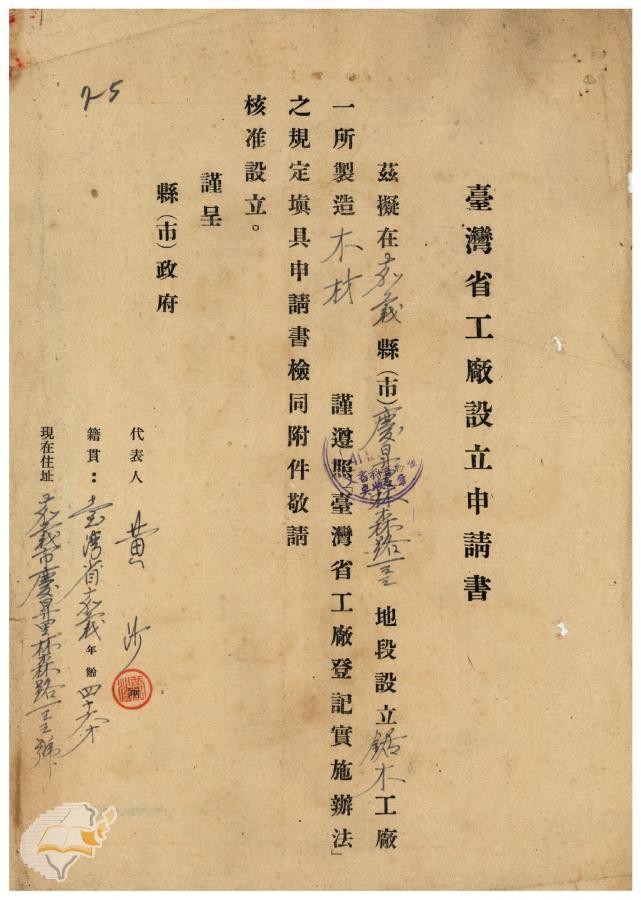 臺灣省工廠設立申請書
茲擬在嘉義縣(市)慶昇里林森路一三三地段設立鋸木工廠
一所製造木材 謹遵照臺灣省工廠登記實施辦法」
之規定填具申請書檢同附件敬請
核准設立。
謹呈
縣(市)政府
代表人 黃
籍貫:臺灣省嘉義年齡四十六才
現在住址 嘉義市慶昇里林森路一三三號
25